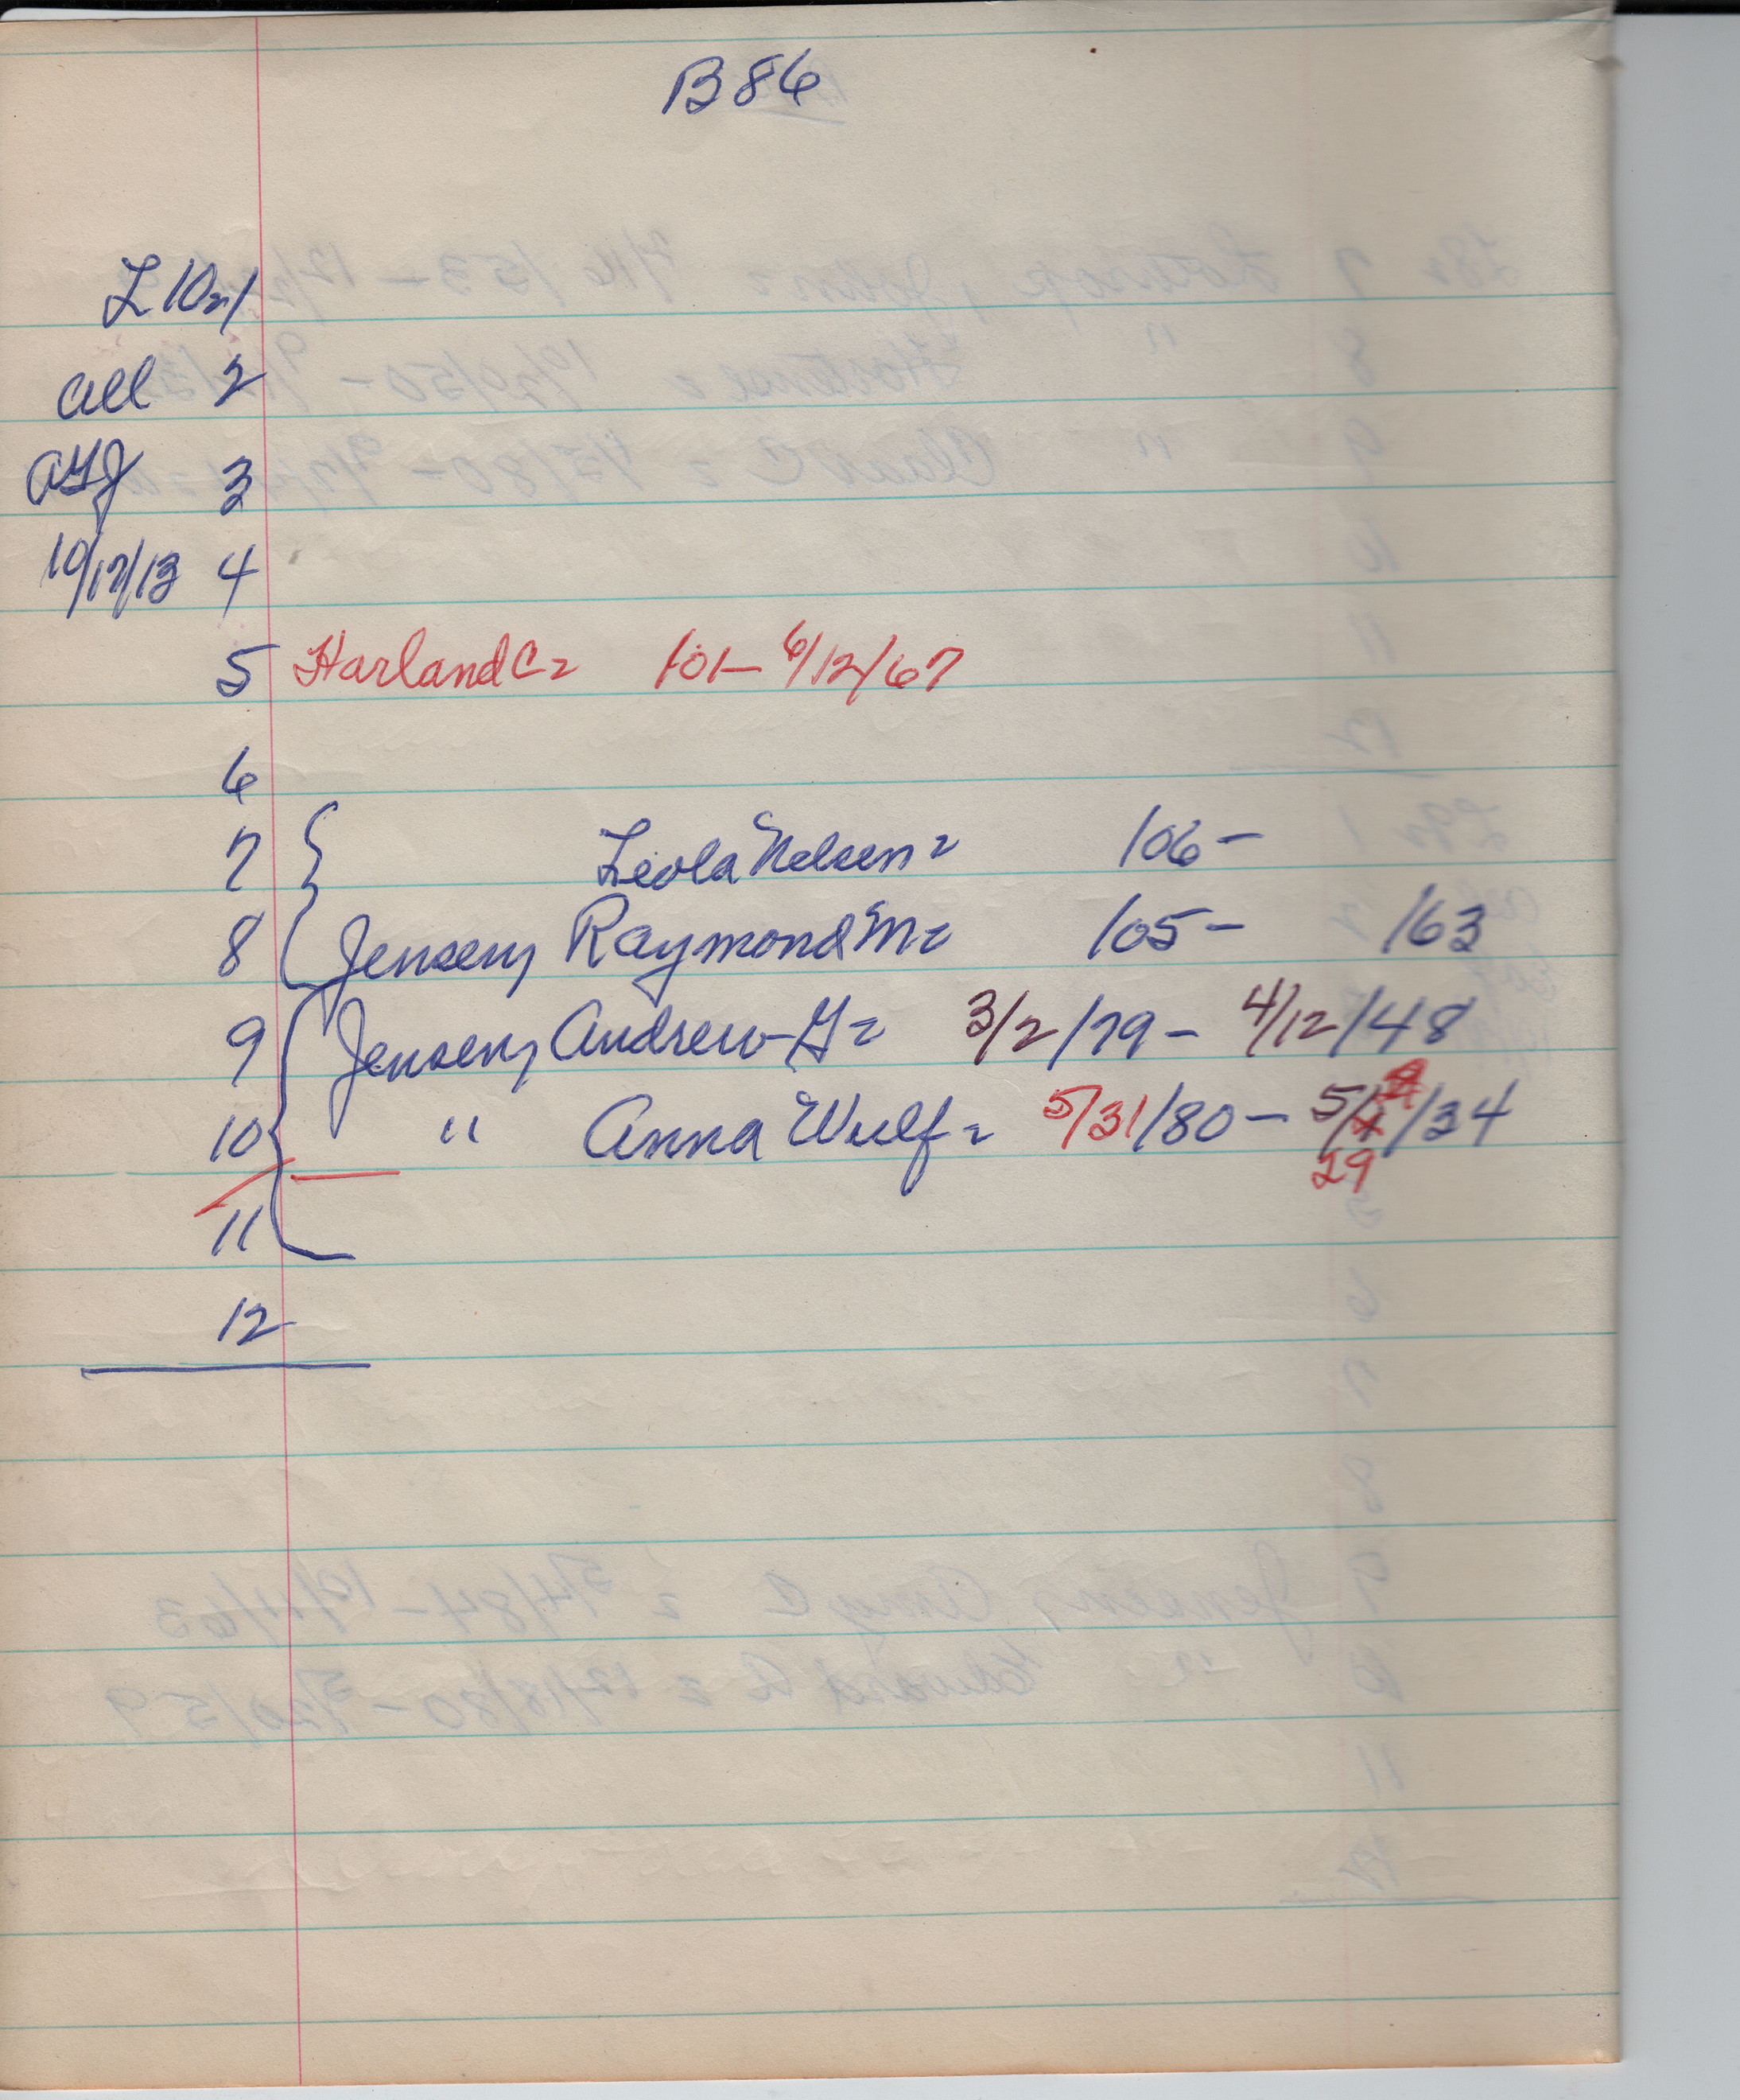 B 86
L 10= 1
all 2
AGJ 3
10/17/13 4
5 Harland C= /01- 6/12/67
6
7 Leola Nelsen= /06-
8 Jensen, Raymond M= /05- /63
9 Jensen, Andrew G= 3/2/79- 4/12/48
10 " Anna Wulf= 5/31/80- 5/ /34
29
11
12